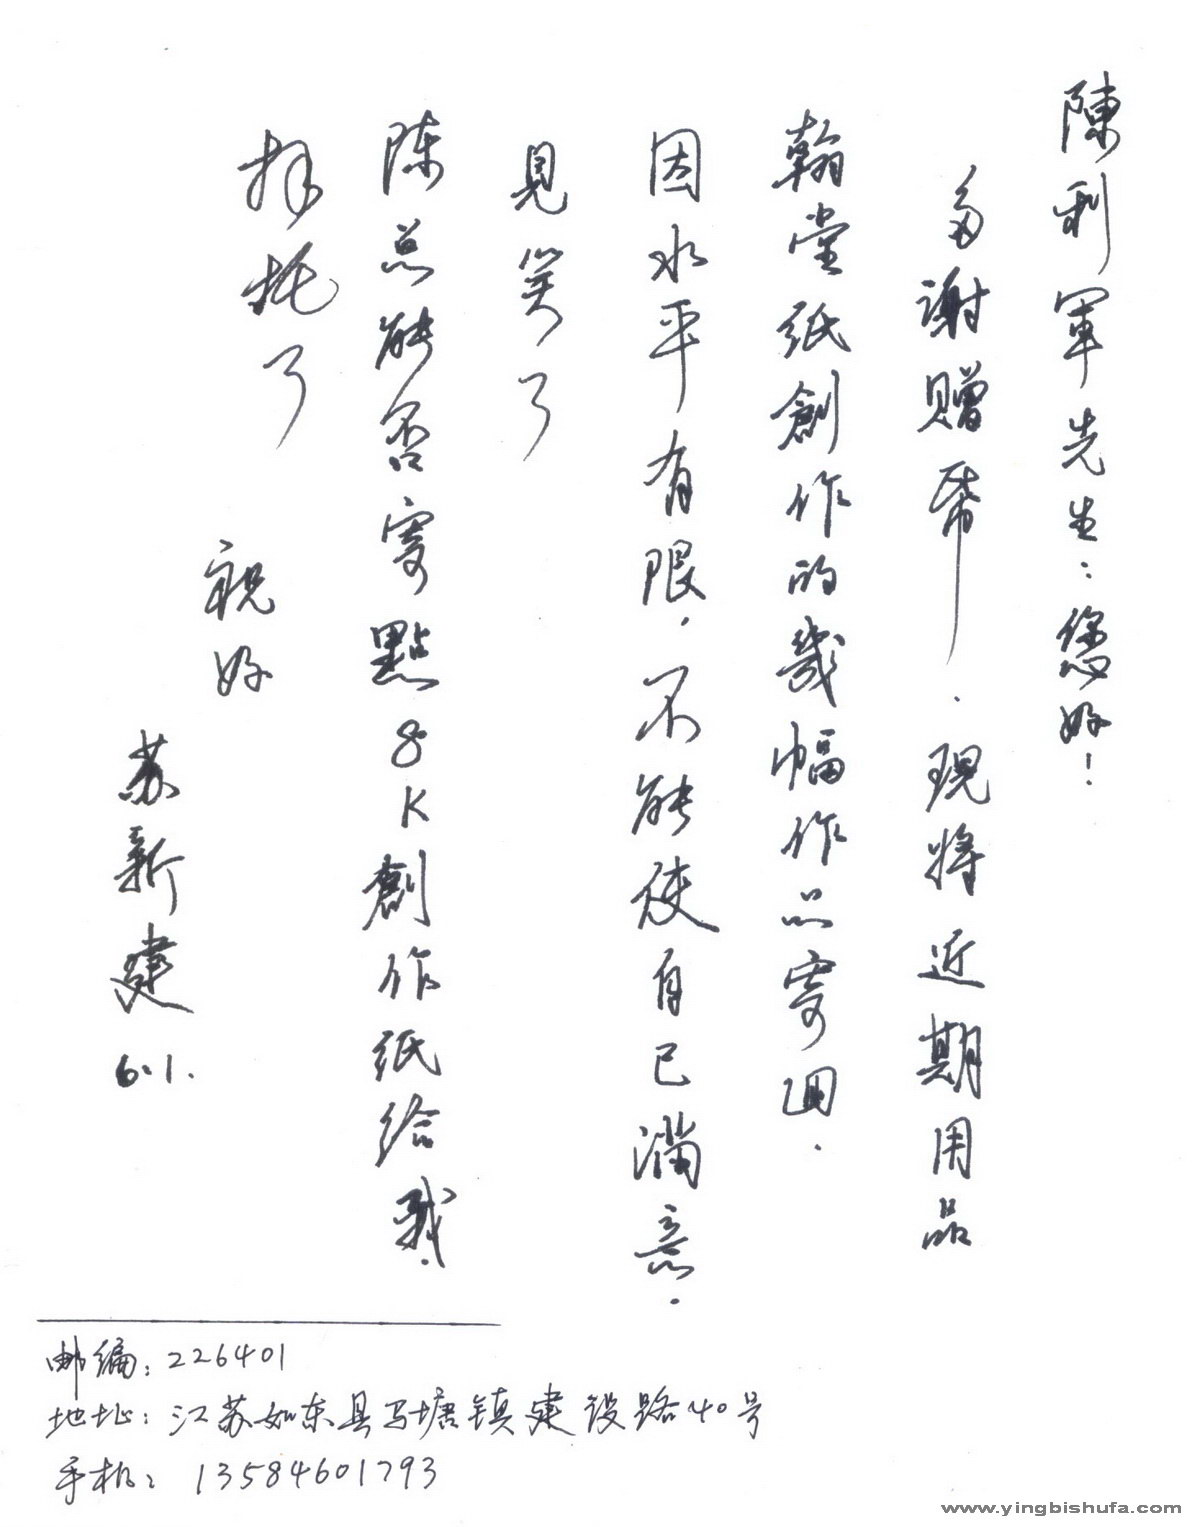 陳利軍先生：您好！
多謝赠帋．現將近期用品
翰堂紙創作的幾幅作品寄回．
因水平有限，不能使自己滿意．
見笑了
陈总能否寄點8K創作紙给我．
拜托了
祝好
苏新建
6.1.
邮编：226401
地址：江苏如东县马塘镇建设路40号
手机：13584601793
www.yingbishufa.com